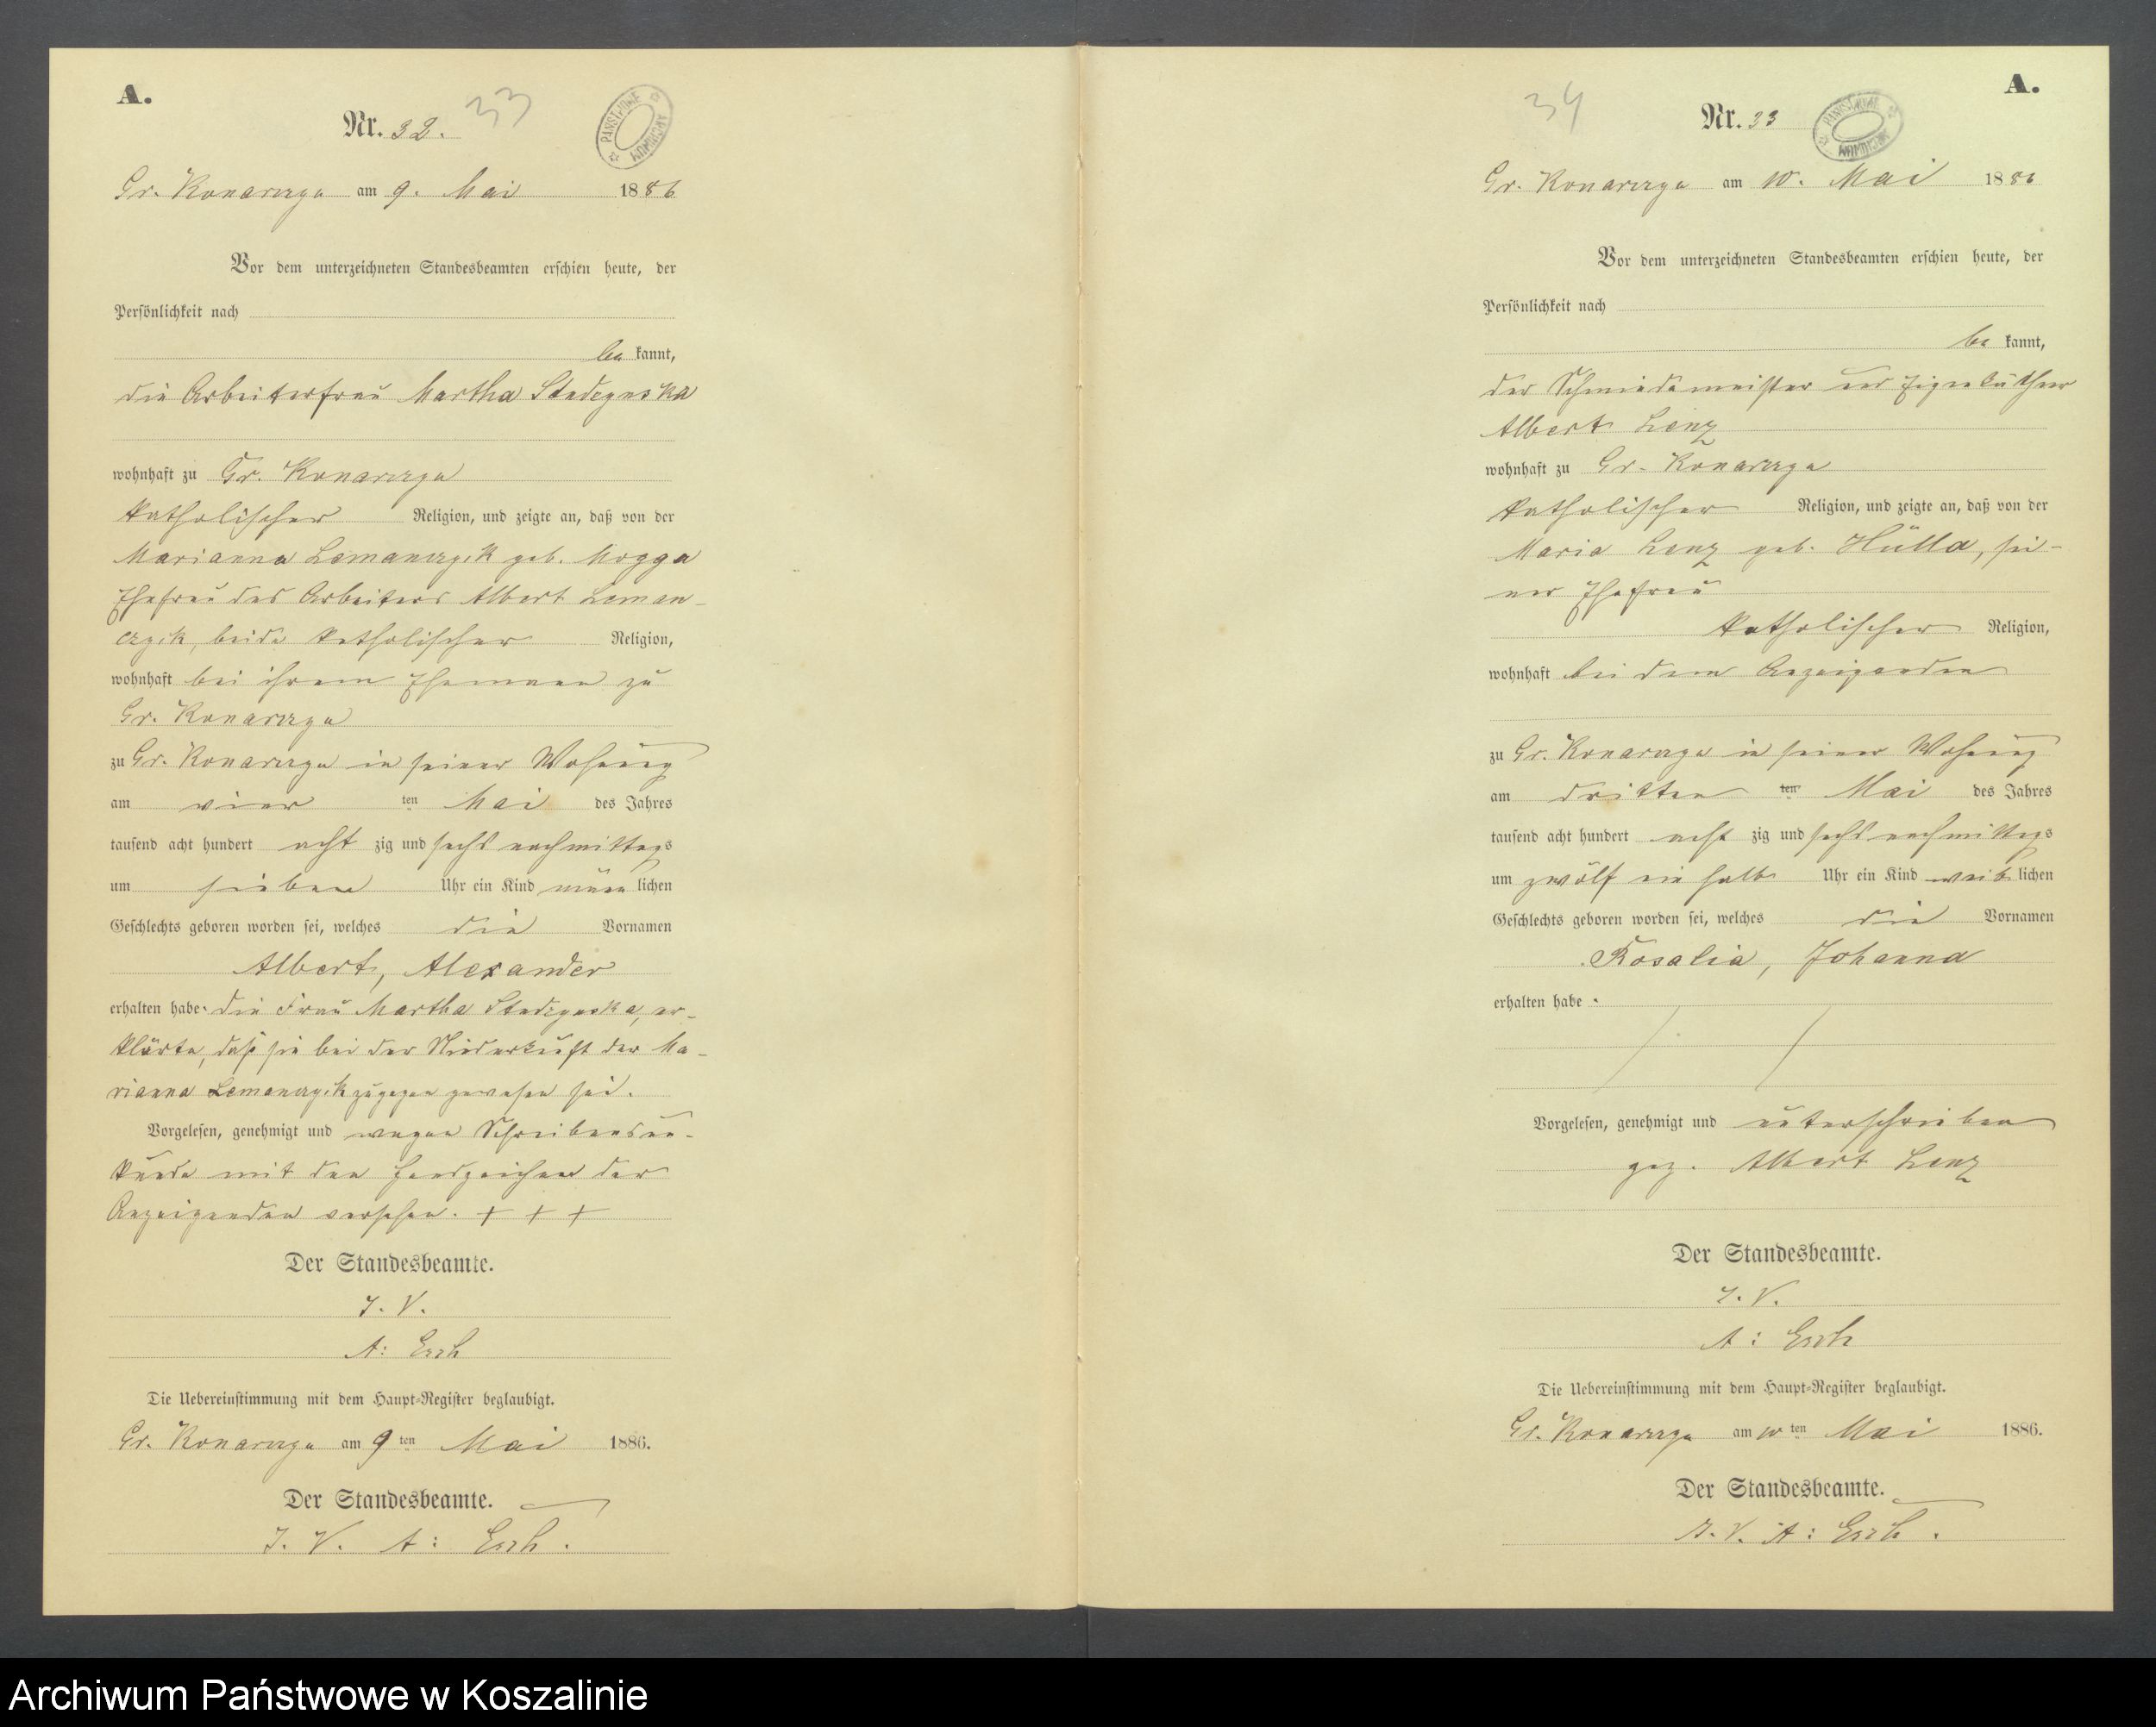 A.
Nr. 32.
33
PAŃSTWOWE ARCHIWUM
Gr. Konarczyn am 9. Mai 1886
Vor dem unterzeichneten Standesbeamten erschien heute, der
Persönlichkeit nach
be kannt,
die Arbeiterfrau Martha
wohnhaft zu Gr. Konarczyn
katholischer Religion, und zeigte an, daß von der
Marianna Lemanczyk geb. Mogga
Ehefrau des Arbeiters Albert Leman-
czyk, beide katholischer Religion,
wohnhaft bei ihrem Ehemann zu
Gr. Konarczyn
zu Gr. Konarczyn in seiner Wohnung
am vier ten Mai des Jahres
tausend acht hundert acht zig und sechs nachmittags
um sieben Uhr ein Kind männ lichen
Geschlechts geboren worden sei, welches die Vornamen
Albert, Alexander
erhalten habe. Die Frau Martha er-
klärte, daß sie bei der Niederkunft der Ma-
rianna Lemanczyk zugegen gewesen sei.
Vorgelesen, genehmigt und wegen Schreibensun-
kunde mit den Handzeichen der
Anzeigenden versehen. + + +
Der Standesbeamte.
J. V.
A: Esch
Die Uebereinstimmung mit dem Haupt-Register beglaubigt.
Gr. Konarczyn am 9 ten Mai 1886.
Der Standesbeamte.
J. V. A: Esch.
A.
34
Nr. 33
PAŃSTWOWE ARCHIWUM
Gr. Konarczyn am 10. Mai 1886
Vor dem unterzeichneten Standesbeamten erschien heute, der
Persönlichkeit nach
be kannt,
der Schmiedemeister und Eigenthümer
Albert Lenz
wohnhaft zu Gr. Konarczyn
katholischer Religion, und zeigte an, daß von der
Maria Lenz geb. Hülla, sei-
ner Ehefrau
katholischer Religion,
wohnhaft bei dem Anzeigenden
zu Gr. Konarczyn in seiner Wohnung
am dritten ten Mai des Jahres
tausend acht hundert acht zig und sechs nachmittags
um zwölf ein halb Uhr ein Kind weib lichen
Geschlechts geboren worden sei, welches die Vornamen
Rosalia, Johanna
erhalten habe.
Vorgelesen, genehmigt und unterschrieben
gez. Albert Lenz
Der Standesbeamte.
J. V.
A: Esch
Die Uebereinstimmung mit dem Haupt-Register beglaubigt.
Gr. Konarczyn am 10 ten Mai 1886.
Der Standesbeamte.
J. V. A: Esch.
Archiwum Państwowe w Koszalinie